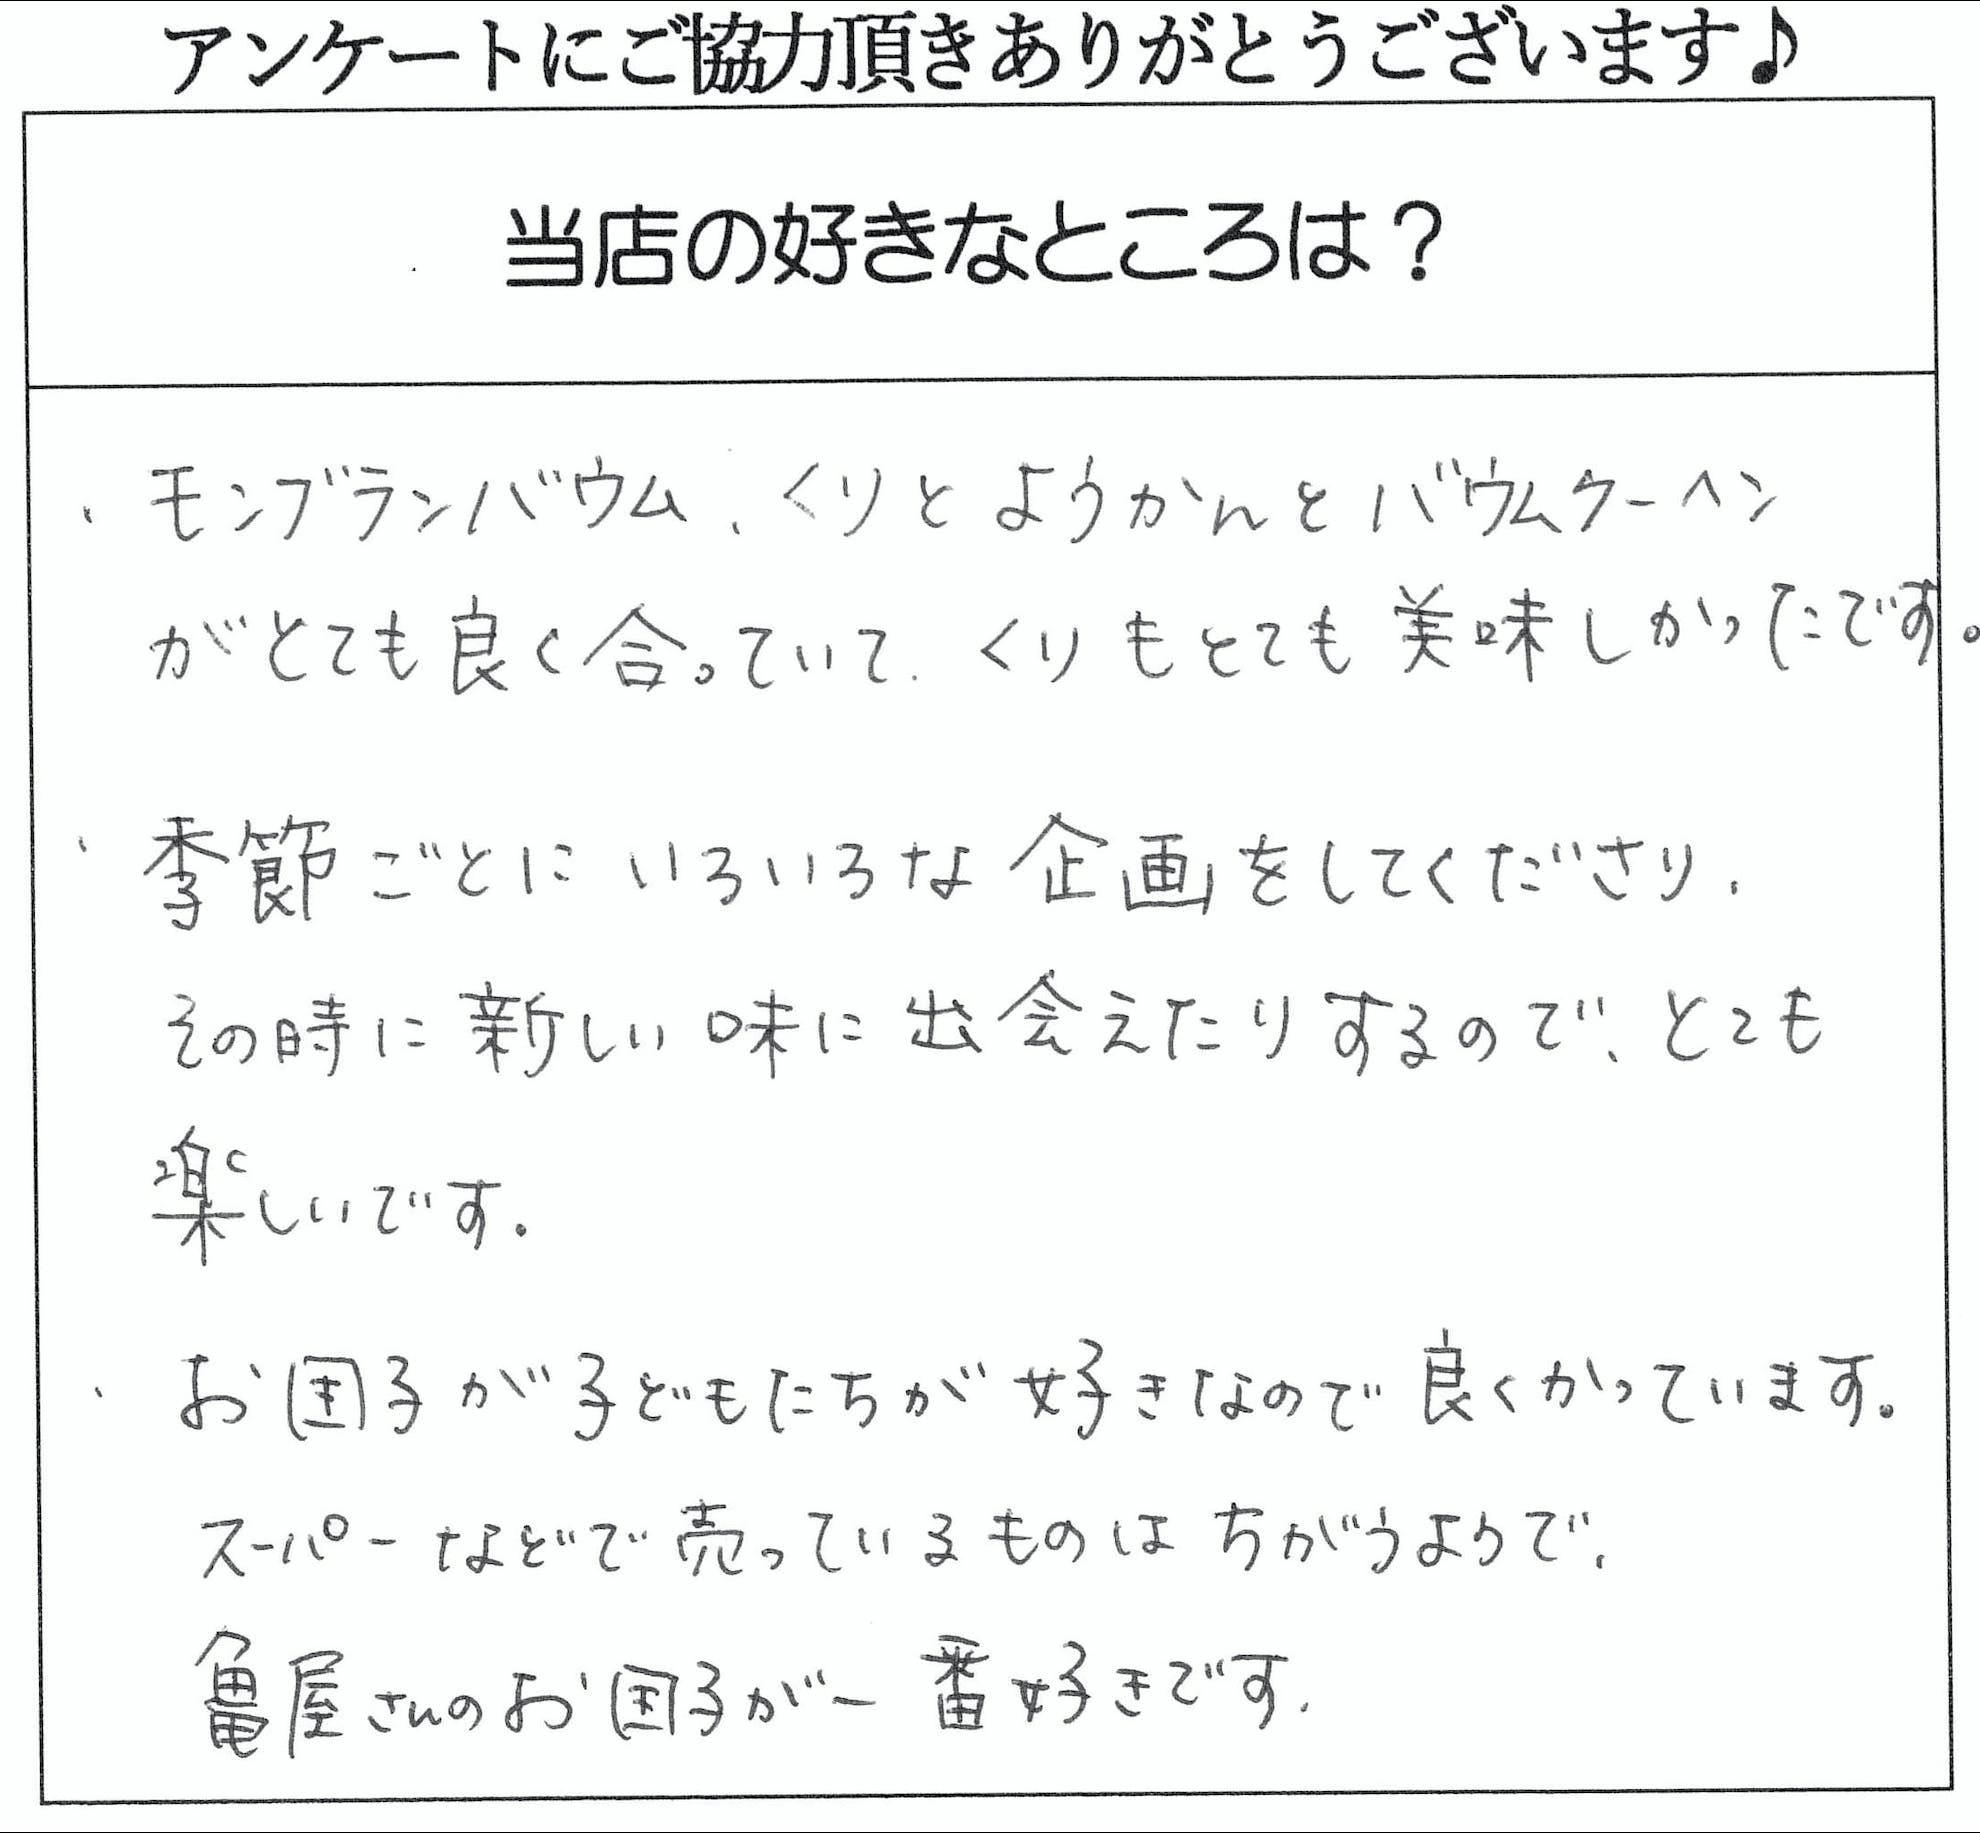 アンケートにご協力頂きありがとうございます♪
当店の好きなところは？
・モンブランバウム、くりとようかんとバウムクーヘン
がとても良く合っていて、くりもとても美味しかったです。
・季節ごとにいろいろな企画をしてくださり、
その時に新しい味に出会えたりするので、とても
楽しいです。
・お団子が子どもたちが好きなので良くかっています。
スーパーなどで売っているものはちがうようで、
亀屋さんのお団子が一番好きです。